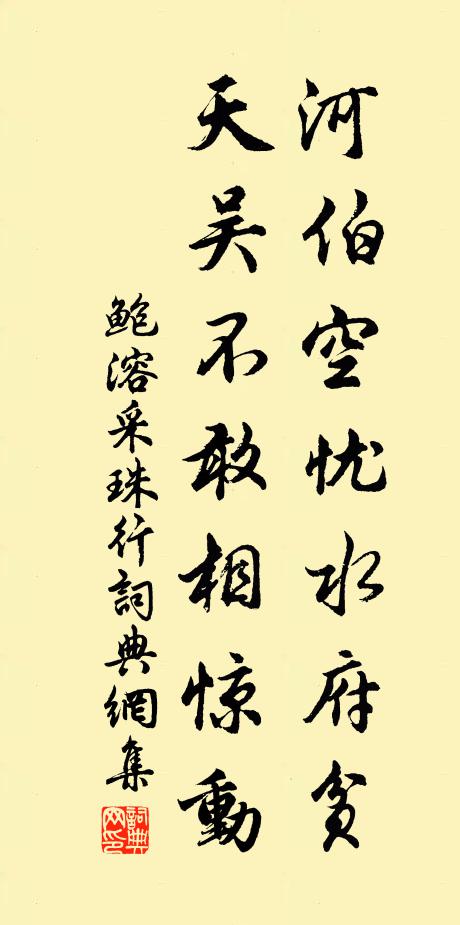 河伯空忧水府贫
天吴不敢相惊動
鲍溶采珠行詞典網集
詞典網印